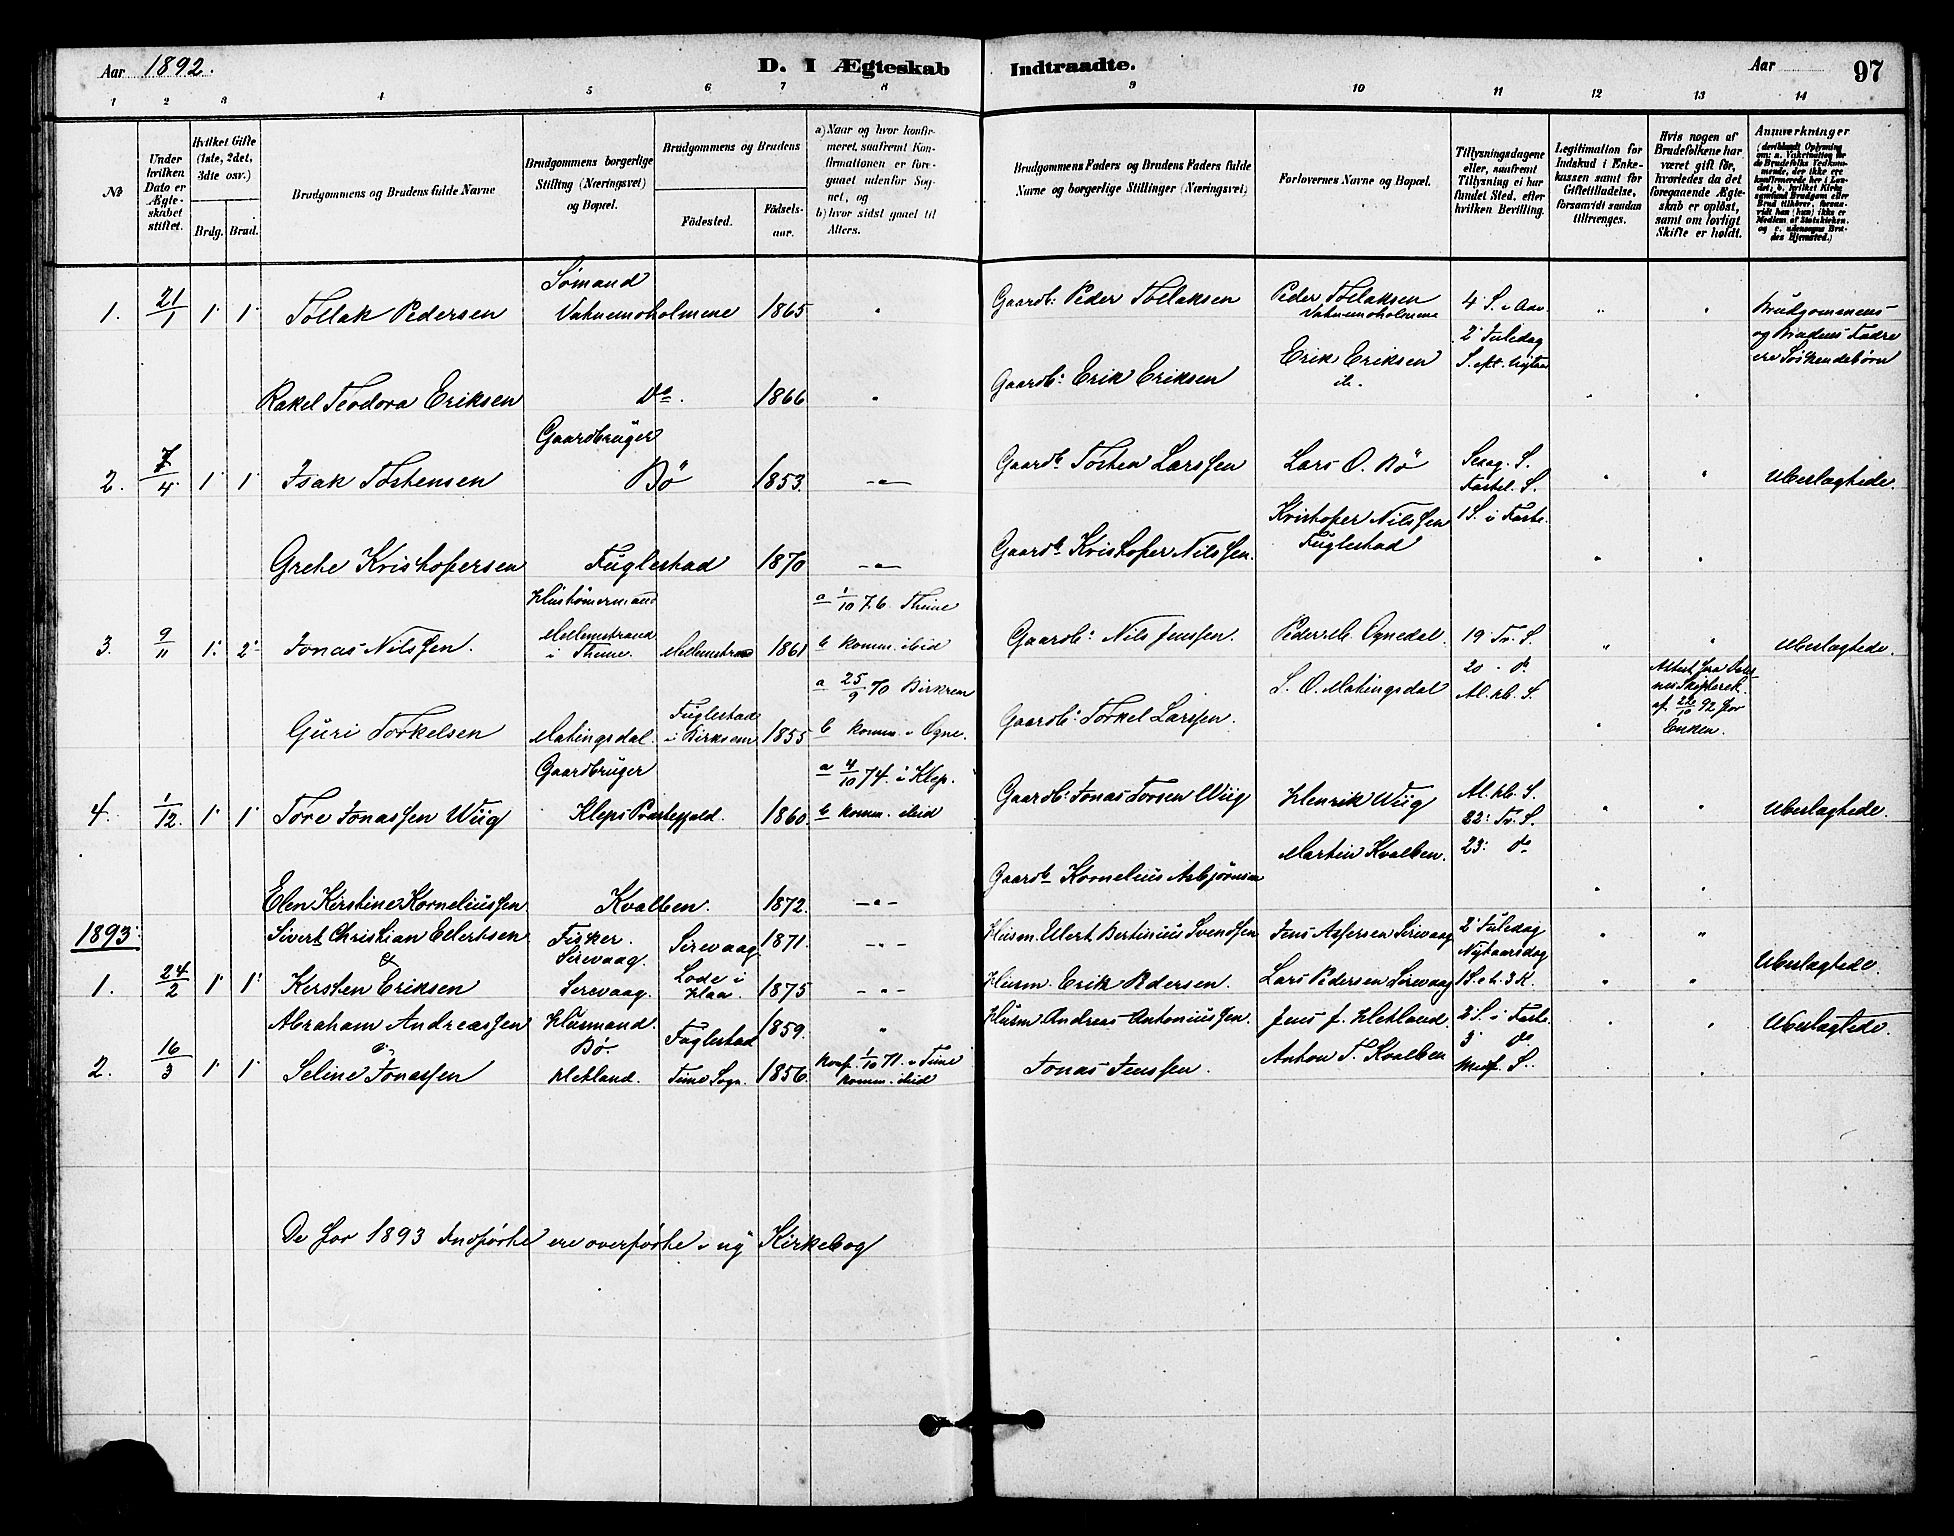 Aar 1892.
D. I Ægteskab Indtraadte.
Aar
97
1 2 3 4 5 6 7 8 9 10 11 12 13 14
No
Under hvilken Dato er Ægteskabet stiftet.
Hvilket Gifte (1ste, 2det, 3die osv.)
Brdg. Brud.
Brudgommens og Brudens fulde Navne
Brudgommens borgerlige Stilling (Næringsvei) og Bopæl.
Brudgommens og Brudens
Fødested.
Fødselsaar.
a) Naar og hvor konfirmeret, saafremt Konfirmationen er foregaaet udenfor Sognet, og
b) hvor sidst gaaet til Alters.
Brudgommens Faders og Brudens Faders fulde Navne og borgerlige Stillinger (Næringsvei)
Forlovernes Navne og Bopæl.
Tillysningsdagene eller, saafremt Tillysning ei har fundet Sted, efter hvilken Bevilling.
Legitimation for Indskud i Enkekassen samt for Giftetilladelse, forsaavidt saadan tiltrænges.
Hvis nogen af Brudefolkene har været gift før, hvorledes da det foregaaende Ægteskab er opløst, samt om lovligt Skifte er holdt.
Anmærkninger
1. 21/1 1. 1. Tollak Pedersen Sømand Vatnemoholmene 1865 " Gaardb: Peder Tollaksen Peder Tollaksen Vatnemoholmene 4 S. i Adv. 2 Juledag " " Brudgommens og Brudens Fædre ere Søskendebørn
Rakel Teodora Eriksen Do. 1866 " Gaardb: Erik Eriksen Erik Eriksen ib. S. eft. Nytaar " "
2. 7/4 1. 1. Isak Tostensen Gaardbruger Bö 1853. -"- Gaardb. Tosten Larssen Lars O. Bö Sexag. S. Fastel. S. " " Ubeslægtede.
Grete Kristofersen Fuglestad 1870 -"- Gaardb. Kristofer Nilssen. Kristofer Nilssen Fuglestad 1 S. i Faste. " "
3. 9/11 1. 2. Jonas Nilssen. Hustømermand Mellemstrand i Thime. Mellemstrand 1861 a 1/10 76. Thime b komm. ibid Gaardb: Nils Jenssen. Ognedal. 19 Tr. S. " " Ubeslægtede.
Guri Torkelsen Matingsdal. Fuglestad i Birkrem 1855 a 25/9 70 Birkrem b komm. i Ogne. Gaardb: Torkel Larssen. S. O. Matingsdal 20 - do Al. hl. S. " af 22/10 92 for Enken.
4. 1/12. 1. 1. Tore Jonassen Wiig Gaardbruger Kleps Præstegjeld. 1860. a 4/10 74. i Klep. b komm. ibid Gaardb: Jonas Torsen Wiig Henrik Wiig Al. hl. S. 22: Tr. S. " " Ubeslægtede.
Elen Kirstine Korneliussen Kvalben. 1872. -"- Gaardb Kornelius Asbjørnsen Martin Kvalben. 23: do " "
1893: Sivert Christian Eilertsen Fisker. Sirevaag. Sirevaag 1871. -"- Husm. Eilert Bertinius Svendsen Jens Sirevaag 2 Juledag Nytaarsdag " "
1. 24/2 1. 1. & Kersten Eriksen Sirevaag. Lode i Haa. 1875 -"- Husm. Erik Pedersen. Lars Pedersen Sirevaag 1 S. e. h. 3 K. " " Ubeslægtede.
Abraham Andreassen Husmand. Bö. Fuglestad 1859. " Husm Andreas Antoniussen. Jens J. Hetland. 2 S. i Faste. " " Ubeslægtede.
2. 16/3 1. 1. & Seline Jonassen Hetland. Time Sogn. 1856 konf. 1/10 71. i Time komm. ibid Jonas Jenssen. Anton T. Kvalben 3 do Midf. S. " "
De for 1893 Indførte ere overførte i ny Kirkebog